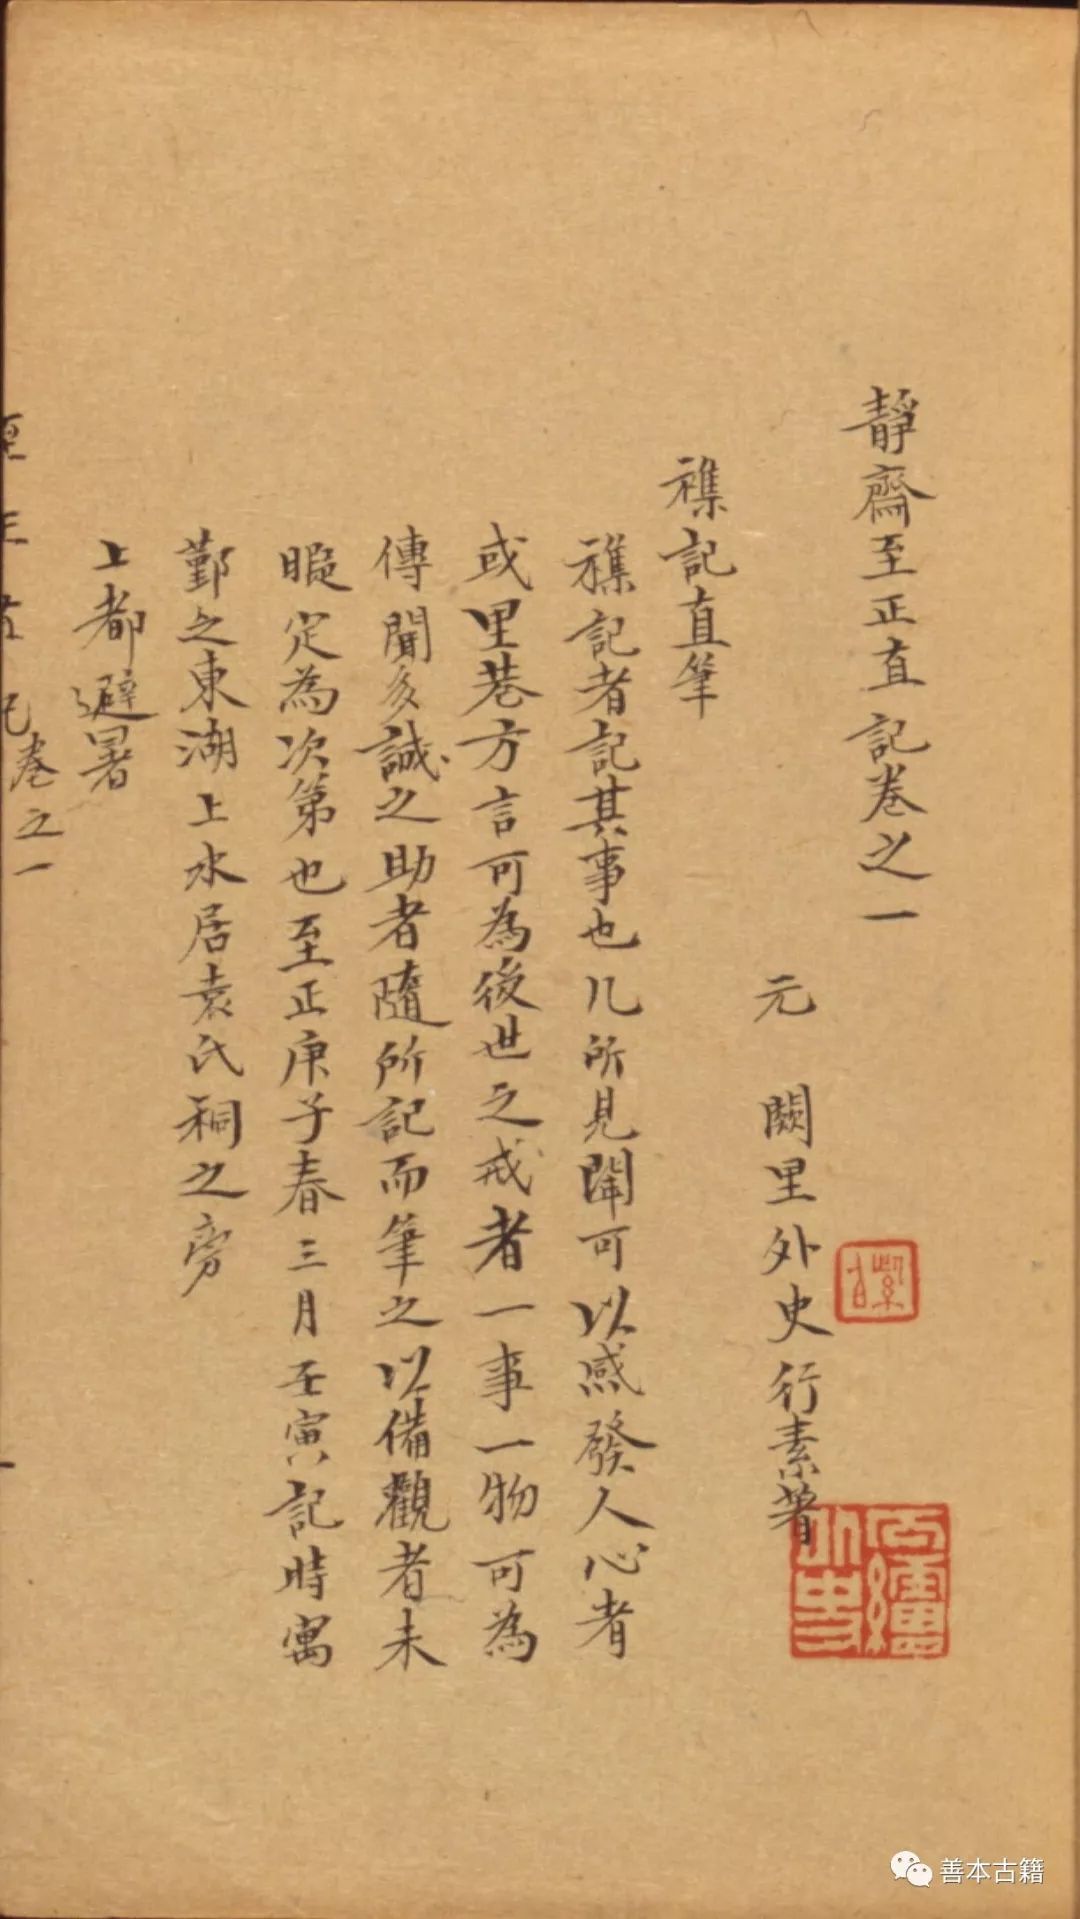 靜齋至正直記卷之一
元　闕里外史行素著
襍記直筆
襍記者記其事也凡所見聞可以感發人心者
或里巷方言可為後世之戒者一事一物可為
傳聞多誠之助者隨所記而筆之以備觀者未
暇定為次第也至正庚子春三月壬寅記時寓
鄞之東湖上水居袁氏祠之旁
上都避暑
至正直記卷之一
一
善本古籍